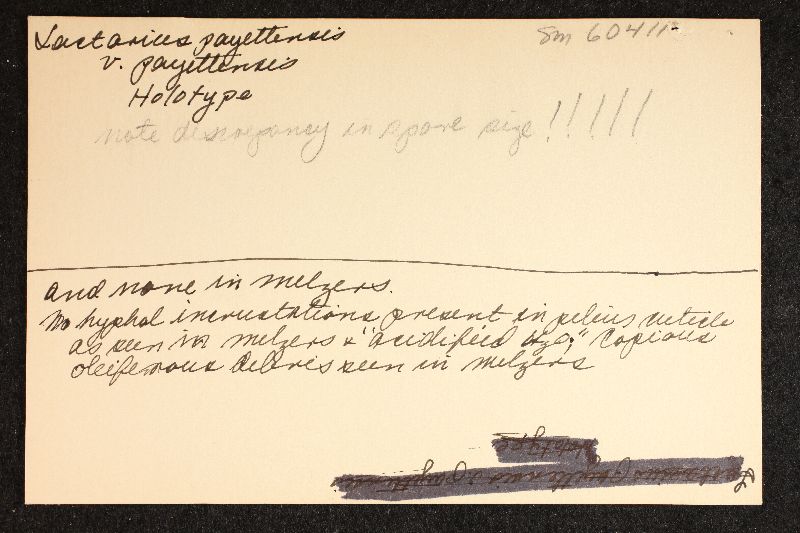 Lactarius payettensis
v. payettensis
Holotype
Sm 60411
note discrepancy in spore size !!!!!!
and none in melzers.
No hyphal incrustations present in pileus cuticle
as seen in melzers & "acidified H2O;" Copious
oleiferous debris seen in melzers
Holotype